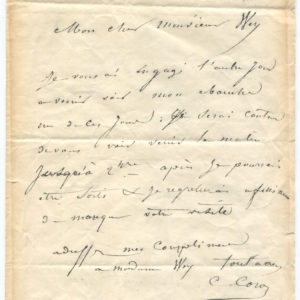 Mon cher monsieur Wey
Je vous ai engagé l'autre jour
a venir voir mon ébauche
un de ces jours; je serai content
de vous voir venir le matin
jusqu'à 2 hres après je pourrais
être sorti & je regretterais
de manquer votre visite
mes compliments
a madame Wey tout a vous
C. Corot